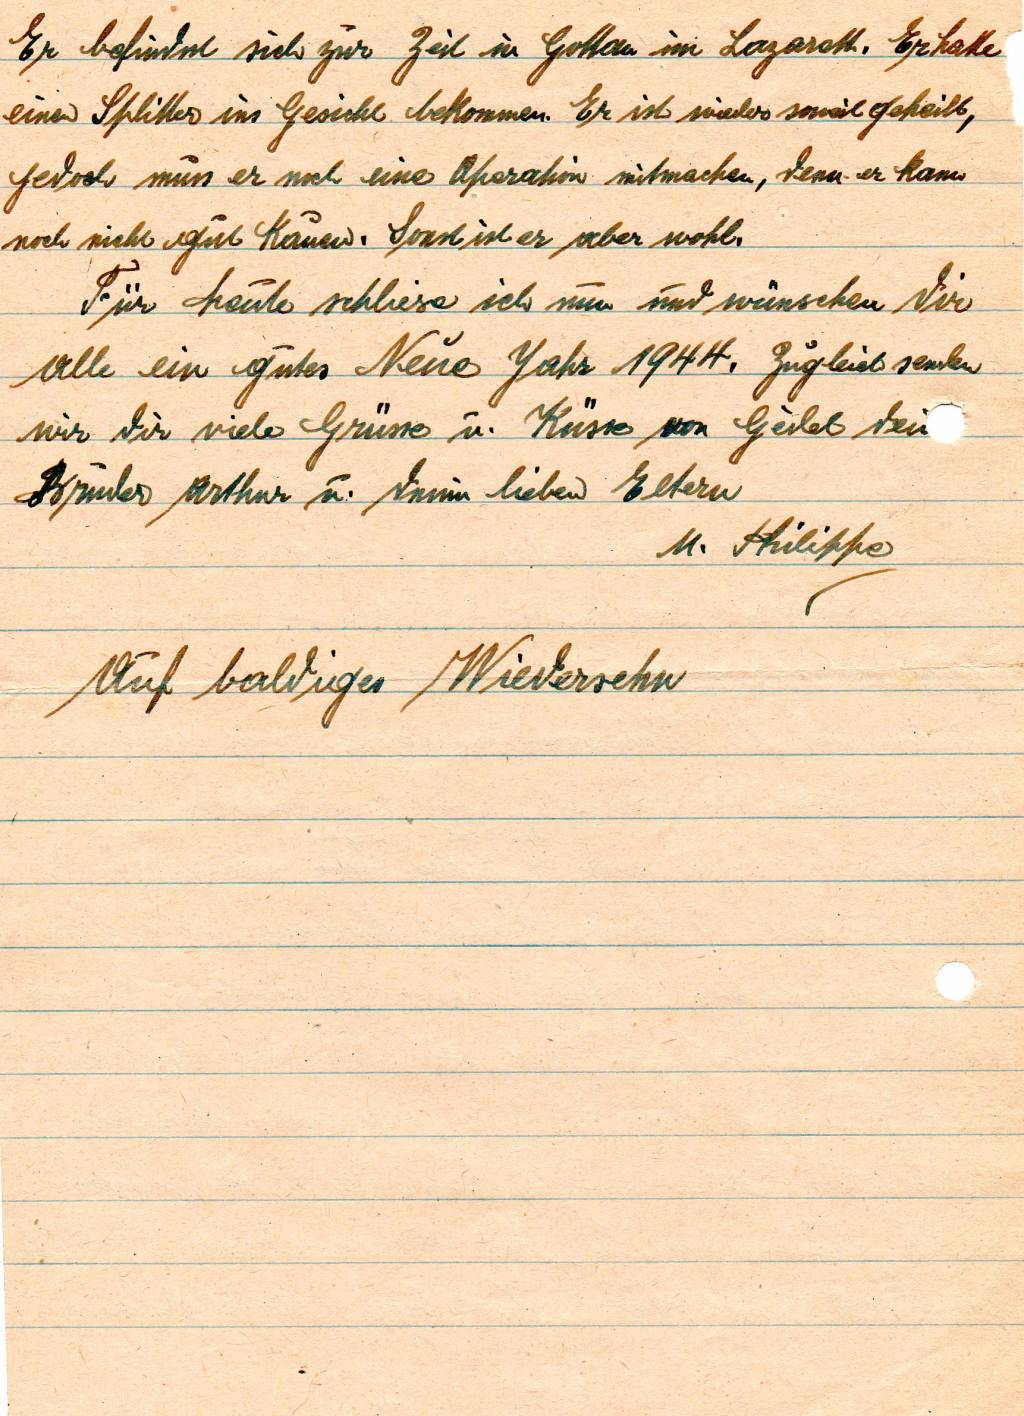 Er befindet sich zur Zeit in im Lazarett. Er hatte
einen Splitter ins Gesicht bekommen. Er ist wieder soweit geheilt,
jedoch muss er noch eine Operation mitmachen, denn er kann
noch nicht gut Kauen. Sonst ist er aber wohl.
Für heute schliese ich nun und wünschen dir
alle ein gutes Neue Jahr 1944. Zugleich senden
wir dir viele Grüsse u. Küsse von dein
Bruder Arthur u. deinen lieben Eltern
M. Philippe
Auf baldiges Wiedersehn